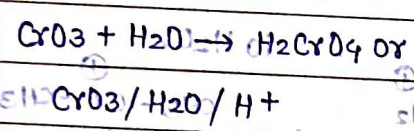 CrO3 + H2O → H2CrO4 or
CrO3/H2O/H+